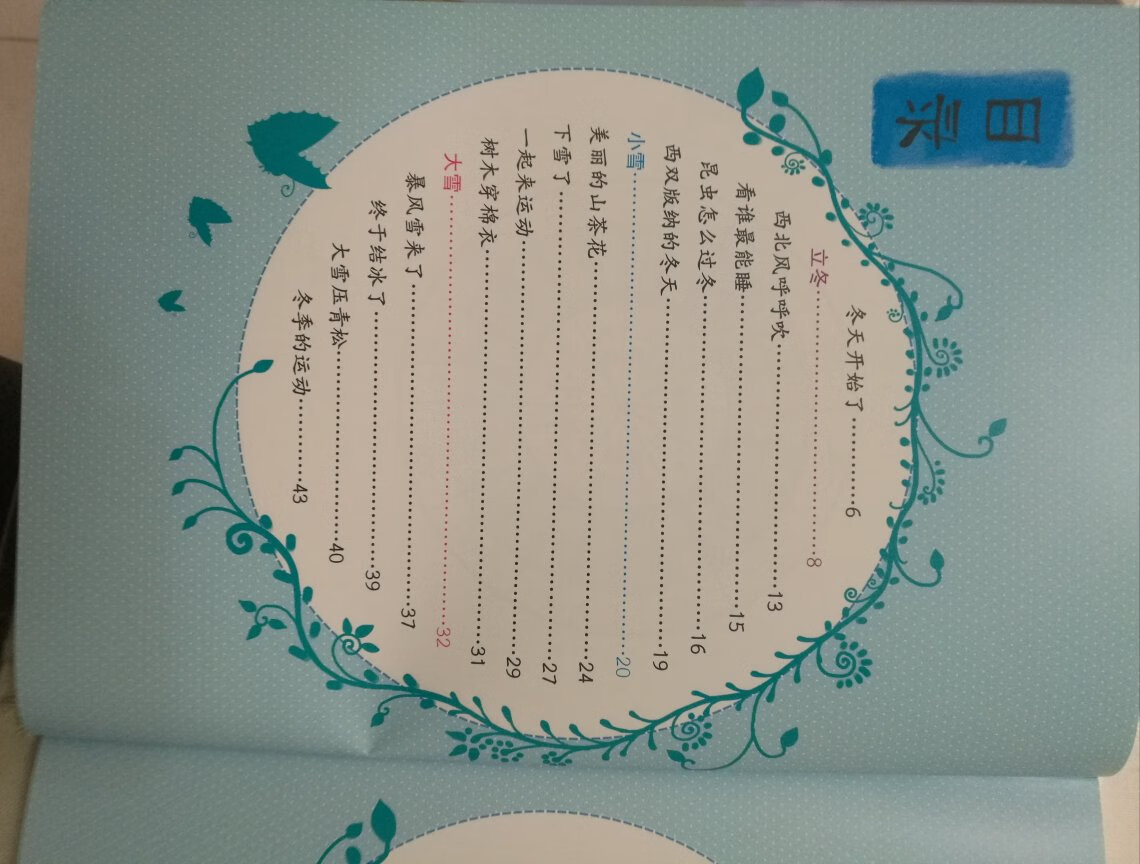 目录
冬天开始了…………6
立冬……………………8
西北风呼呼吹……………………13
看谁最能睡……………………15
昆虫怎么过冬……………………16
西双版纳的冬天……………………19
小雪……………………20
美丽的山茶花……………………24
下雪了……………………27
一起来运动……………………29
树木穿棉衣……………………31
大雪……………………32
暴风雪来了……………………37
终于结冰了……………………39
大雪压青松……………………40
冬季的运动…………43